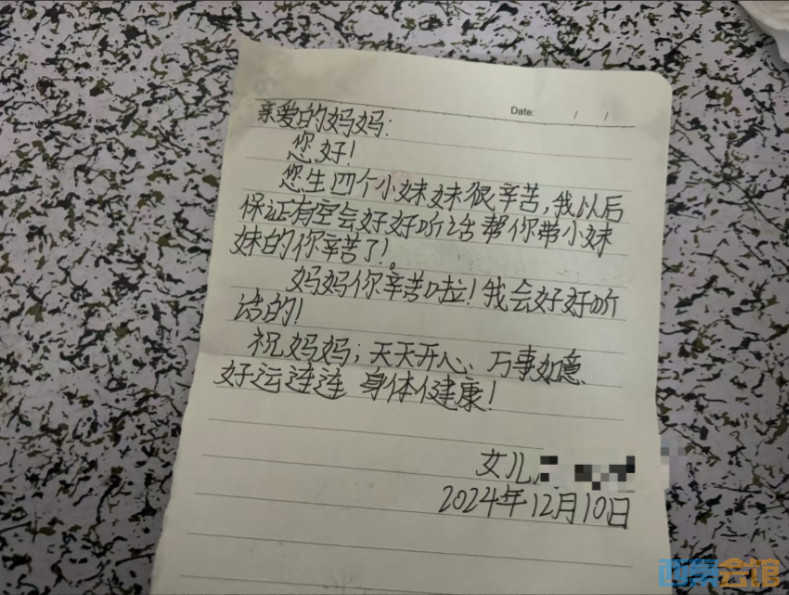 Date: / /
亲爱的妈妈:
您好!
您生四个小妹妹很辛苦,我以后
保证有空会好好听话帮你带小妹
妹的你辛苦了!
妈妈你辛苦啦!我会好好听
话的!
祝妈妈;天天开心、万事如意、
好运连连 身体健康!
女儿
2024年12月10日